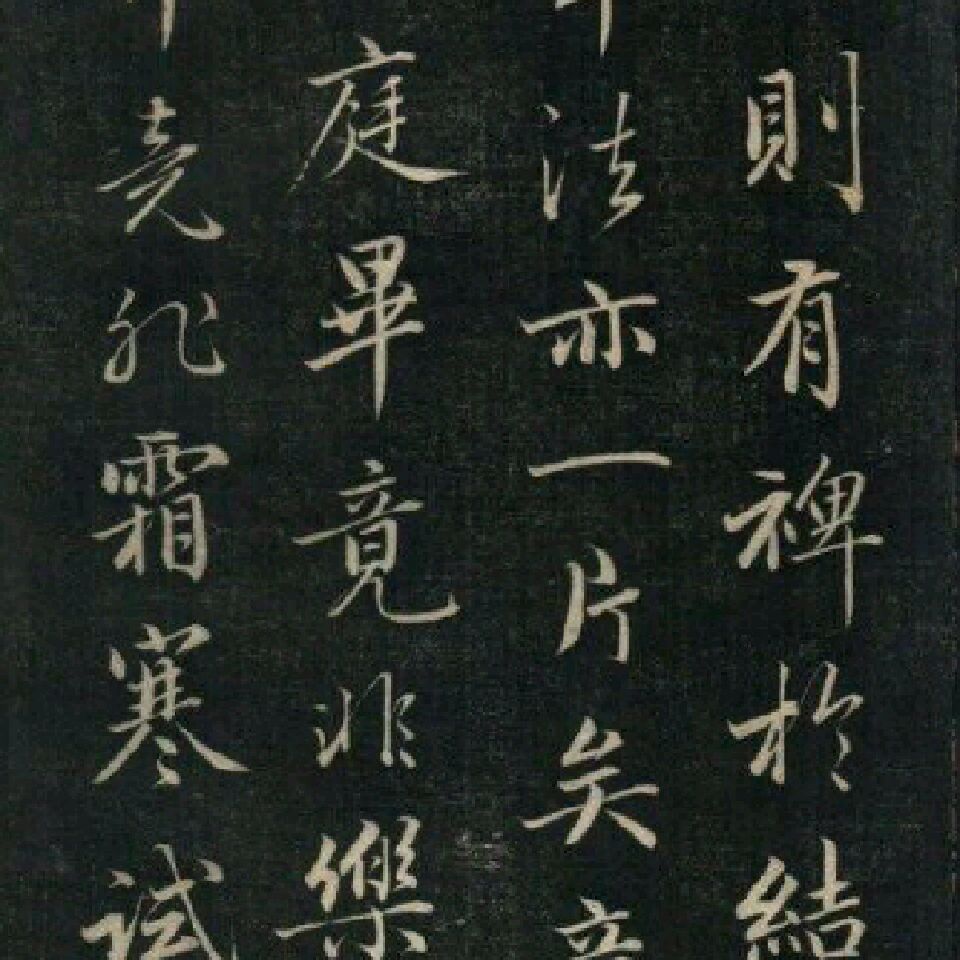 則有裨於結
法亦一片矣
庭畢竟非樂
堯非霜寒試